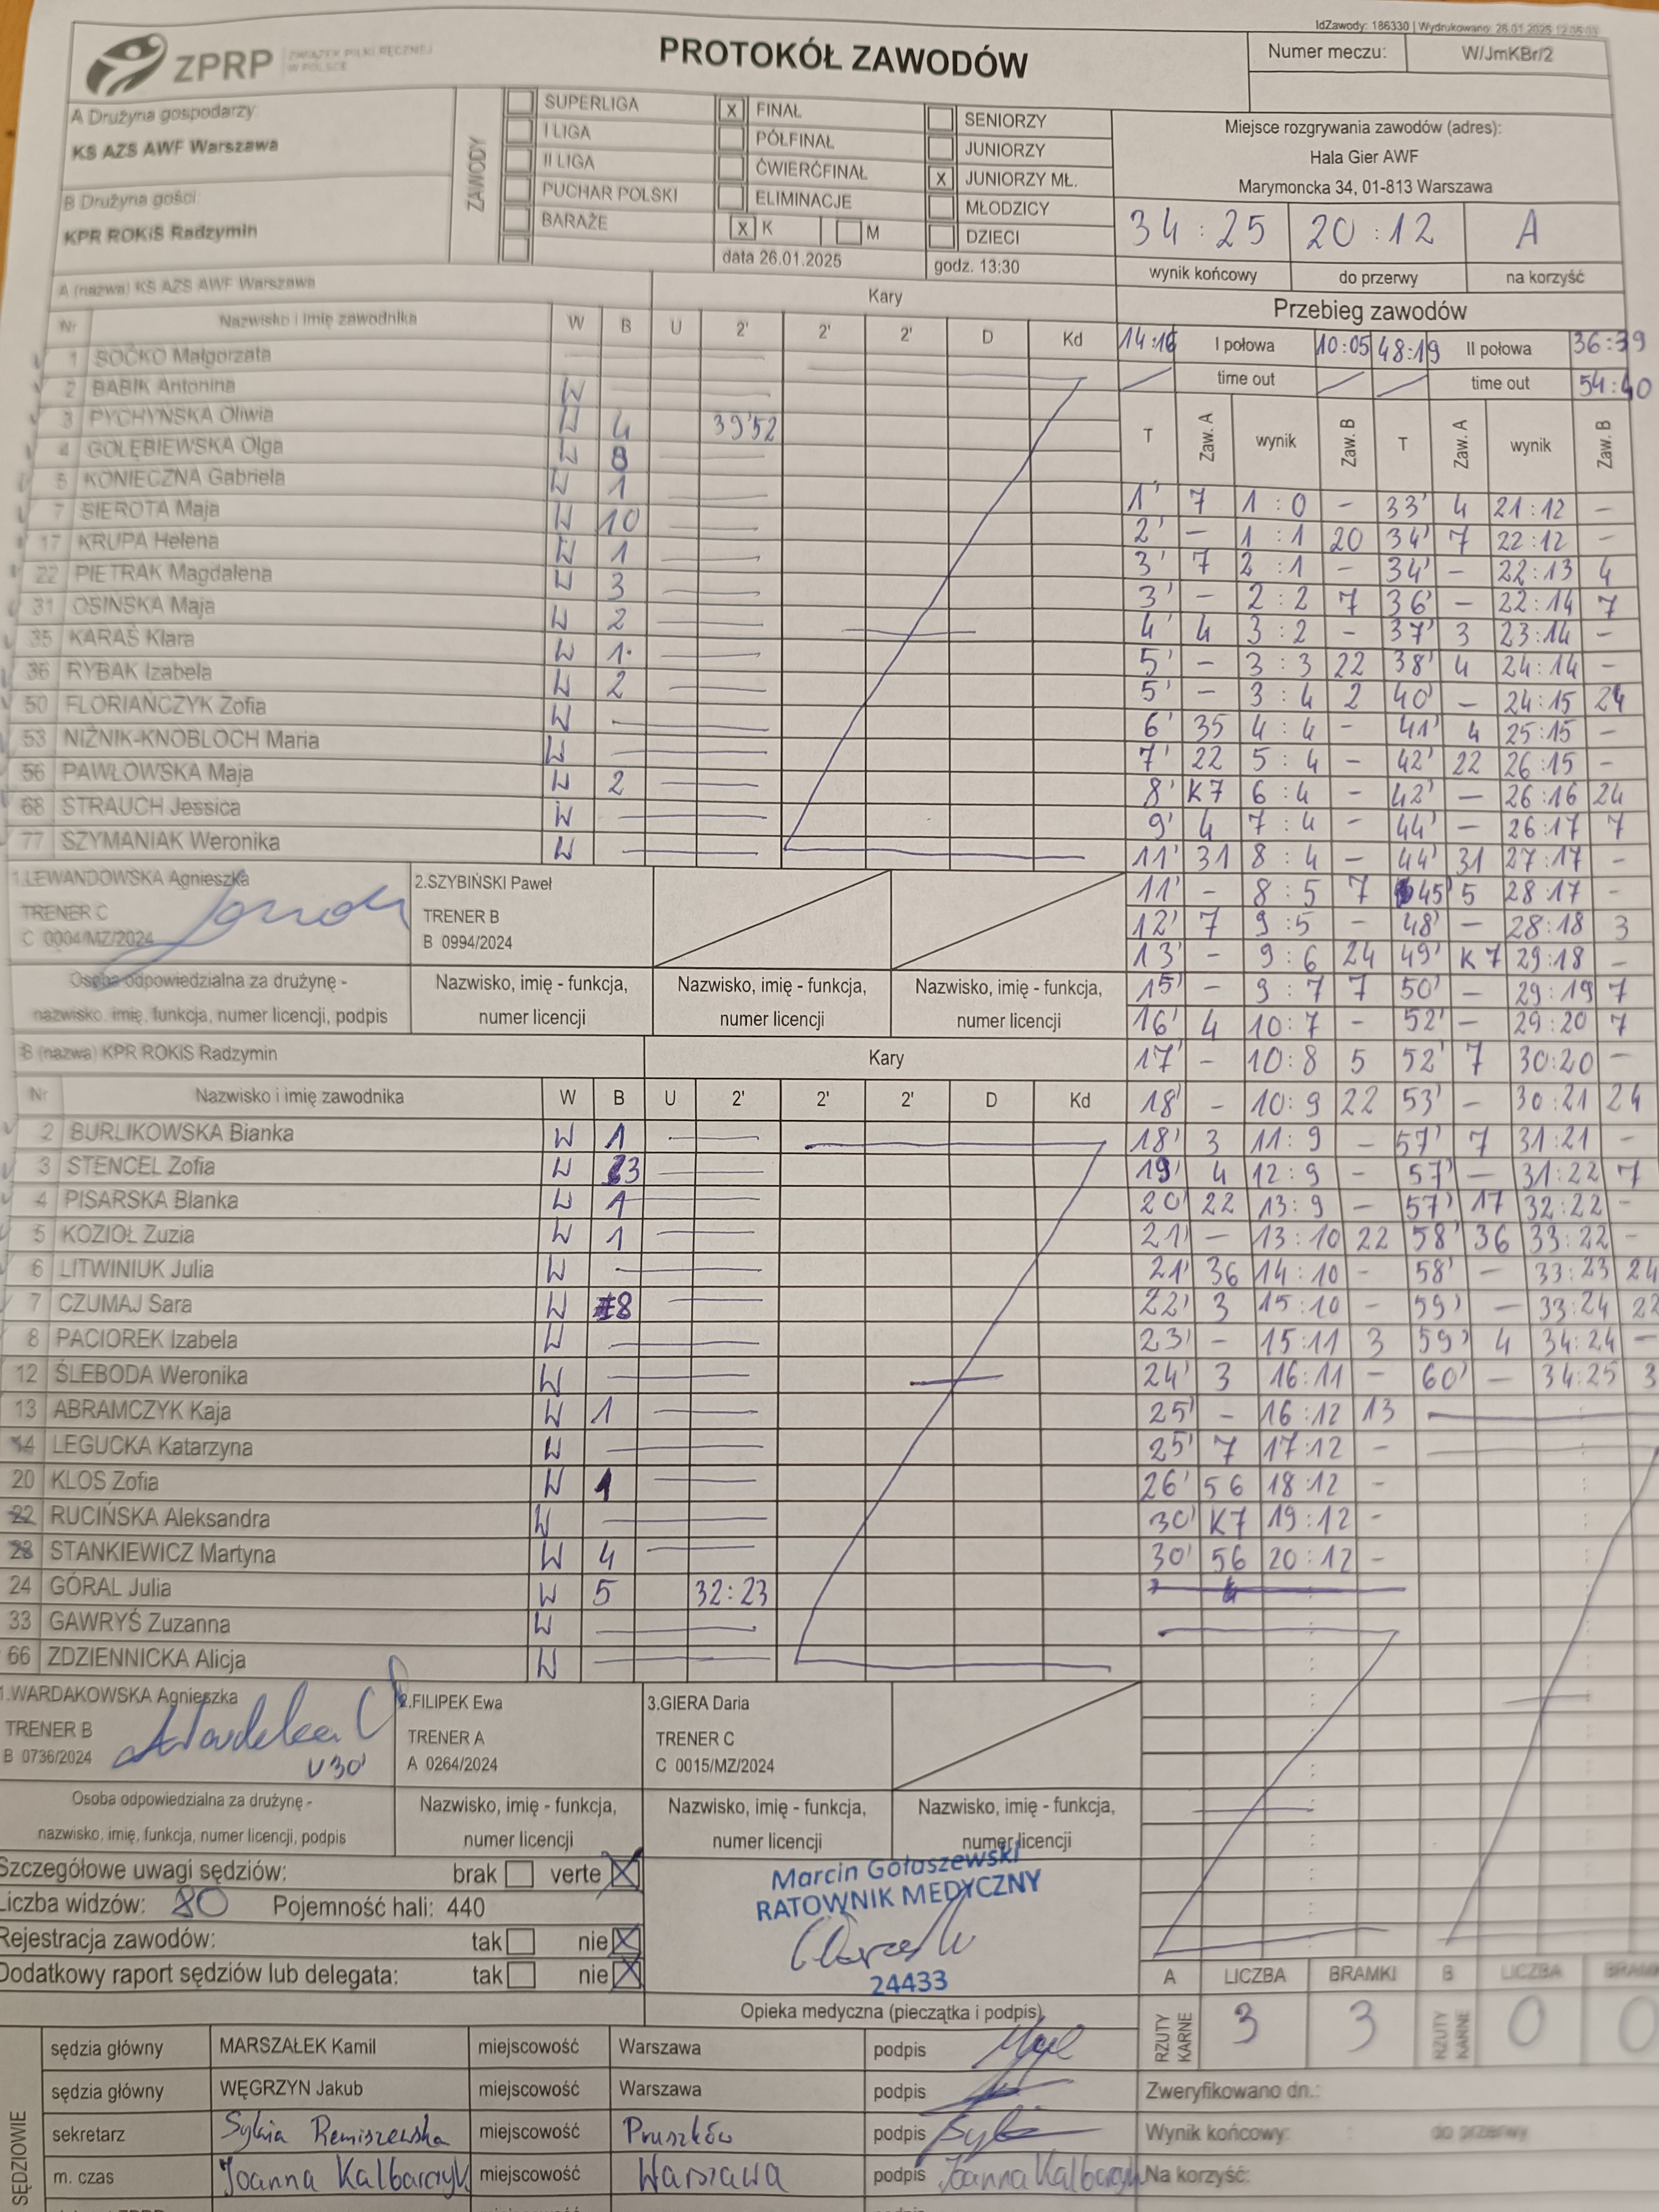 IdZawody: 186330 | Wydrukowano: 26.01.2025 12:05:03
ZPRP ZWIĄZEK PIŁKI RĘCZNEJ W POLSCE
PROTOKÓŁ ZAWODÓW
Numer meczu: W/JmKBr/2
A Drużyna gospodarzy:
KS AZS AWF Warszawa
B Drużyna gości:
KPR ROKiS Radzymin
ZAWODY
SUPERLIGA
I LIGA
II LIGA
PUCHAR POLSKI
BARAŻE
X FINAŁ
PÓŁFINAŁ
ĆWIERĆFINAŁ
ELIMINACJE
X K M
data 26.01.2025
SENIORZY
JUNIORZY
X JUNIORZY MŁ.
MŁODZICY
DZIECI
godz. 13:30
Miejsce rozgrywania zawodów (adres):
Hala Gier AWF
Marymoncka 34, 01-813 Warszawa
34:25 20:12 A
wynik końcowy do przerwy na korzyść
A (nazwa) KS AZS AWF Warszawa Kary
Nr Nazwisko i imię zawodnika W B U 2' 2' 2' D Kd
1 SOĆKO Małgorzata
2 BABIK Antonina W
3 PYCHYŃSKA Oliwia W 4 39'52
4 GOŁĘBIEWSKA Olga W 8
5 KONIECZNA Gabriela W 1
7 SIEROTA Maja W 10
17 KRUPA Helena W 1
22 PIETRAK Magdalena W 3
31 OSIŃSKA Maja W 2
35 KARAŚ Klara W 1
36 RYBAK Izabela W 2
50 FLORIAŃCZYK Zofia W
53 NIŻNIK-KNOBLOCH Maria W
56 PAWŁOWSKA Maja W 2
68 STRAUCH Jessica W
77 SZYMANIAK Weronika W
1.LEWANDOWSKA Agnieszka
TRENER C
C 0004/MZ/2024
2.SZYBIŃSKI Paweł
TRENER B
B 0994/2024
Osoba odpowiedzialna za drużynę -
nazwisko, imię, funkcja, numer licencji, podpis
Nazwisko, imię - funkcja,
numer licencji
Nazwisko, imię - funkcja,
numer licencji
Nazwisko, imię - funkcja,
numer licencji
B (nazwa) KPR ROKiS Radzymin Kary
Nr Nazwisko i imię zawodnika W B U 2' 2' 2' D Kd
2 BURLIKOWSKA Bianka W 1
3 STENCEL Zofia W 3
4 PISARSKA Blanka W 1
5 KOZIOŁ Zuzia W 1
6 LITWINIUK Julia W
7 CZUMAJ Sara W 8
8 PACIOREK Izabela W
12 ŚLEBODA Weronika W
13 ABRAMCZYK Kaja W 1
14 LEGUCKA Katarzyna W
20 KLOS Zofia W 1
22 RUCIŃSKA Aleksandra W
23 STANKIEWICZ Martyna W 4
24 GÓRAL Julia W 5 32:23
33 GAWRYŚ Zuzanna W
66 ZDZIENNICKA Alicja W
1.WARDAKOWSKA Agnieszka
TRENER B
B 0736/2024
V30'
2.FILIPEK Ewa
TRENER A
A 0264/2024
3.GIERA Daria
TRENER C
C 0015/MZ/2024
Osoba odpowiedzialna za drużynę -
nazwisko, imię, funkcja, numer licencji, podpis
Nazwisko, imię - funkcja,
numer licencji
Nazwisko, imię - funkcja,
numer licencji
Nazwisko, imię - funkcja,
numer licencji
Przebieg zawodów
14:16 I połowa 10:05 48:19 II połowa 36:39
time out time out 54:40
T Zaw. A wynik Zaw. B T Zaw. A wynik Zaw. B
1' 7 1:0 - 33' 4 21:12 -
2' - 1:1 20 34' 7 22:12 -
3' 7 2:1 - 34' - 22:13 4
3' - 2:2 7 36' - 22:14 7
4' 4 3:2 - 37' 3 23:14 -
5' - 3:3 22 38' 4 24:14 -
5' - 3:4 2 40' - 24:15 24
6' 35 4:4 - 41' 4 25:15 -
7' 22 5:4 - 42' 22 26:15 -
8' K7 6:4 - 42' - 26:16 24
9' 4 7:4 - 44' - 26:17 7
11' 31 8:4 - 44' 31 27:17 -
11' - 8:5 7 45' 5 28:17 -
12' 7 9:5 - 48' - 28:18 3
13' - 9:6 24 49' K7 29:18 -
15' - 9:7 7 50' - 29:19 7
16' 4 10:7 - 52' - 29:20 7
17' - 10:8 5 52' 7 30:20 -
18' - 10:9 22 53' - 30:21 24
18' 3 11:9 - 57' 7 31:21 -
19' 4 12:9 - 57' - 31:22 7
20' 22 13:9 - 57' 17 32:22 -
21' - 13:10 22 58' 36 33:22 -
21' 36 14:10 - 58' - 33:23 24
22' 3 15:10 - 59' - 33:24 22
23' - 15:11 3 59' 4 34:24 -
24' 3 16:11 - 60' - 34:25 3
25' - 16:12 13
25' 7 17:12 -
26' 56 18:12 -
30' K7 19:12 -
30' 56 20:12 -
Szczegółowe uwagi sędziów: brak verte X
Liczba widzów: 80 Pojemność hali: 440
Rejestracja zawodów: tak nie X
Dodatkowy raport sędziów lub delegata: tak nie X
Marcin Gołaszewski
RATOWNIK MEDYCZNY
24433
Opieka medyczna (pieczątka i podpis)
A LICZBA BRAMKI B LICZBA BRAMKI
RZUTY KARNE 3 3 RZUTY KARNE 0 0
SĘDZIOWIE
sędzia główny MARSZAŁEK Kamil miejscowość Warszawa podpis
sędzia główny WĘGRZYN Jakub miejscowość Warszawa podpis
sekretarz Sylwia Remiszewska miejscowość Pruszków podpis
m. czas Joanna Kalbarczyk miejscowość Warszawa podpis Joanna Kalbarczyk
Zweryfikowano dn.:
Wynik końcowy: : do przerwy
Na korzyść: